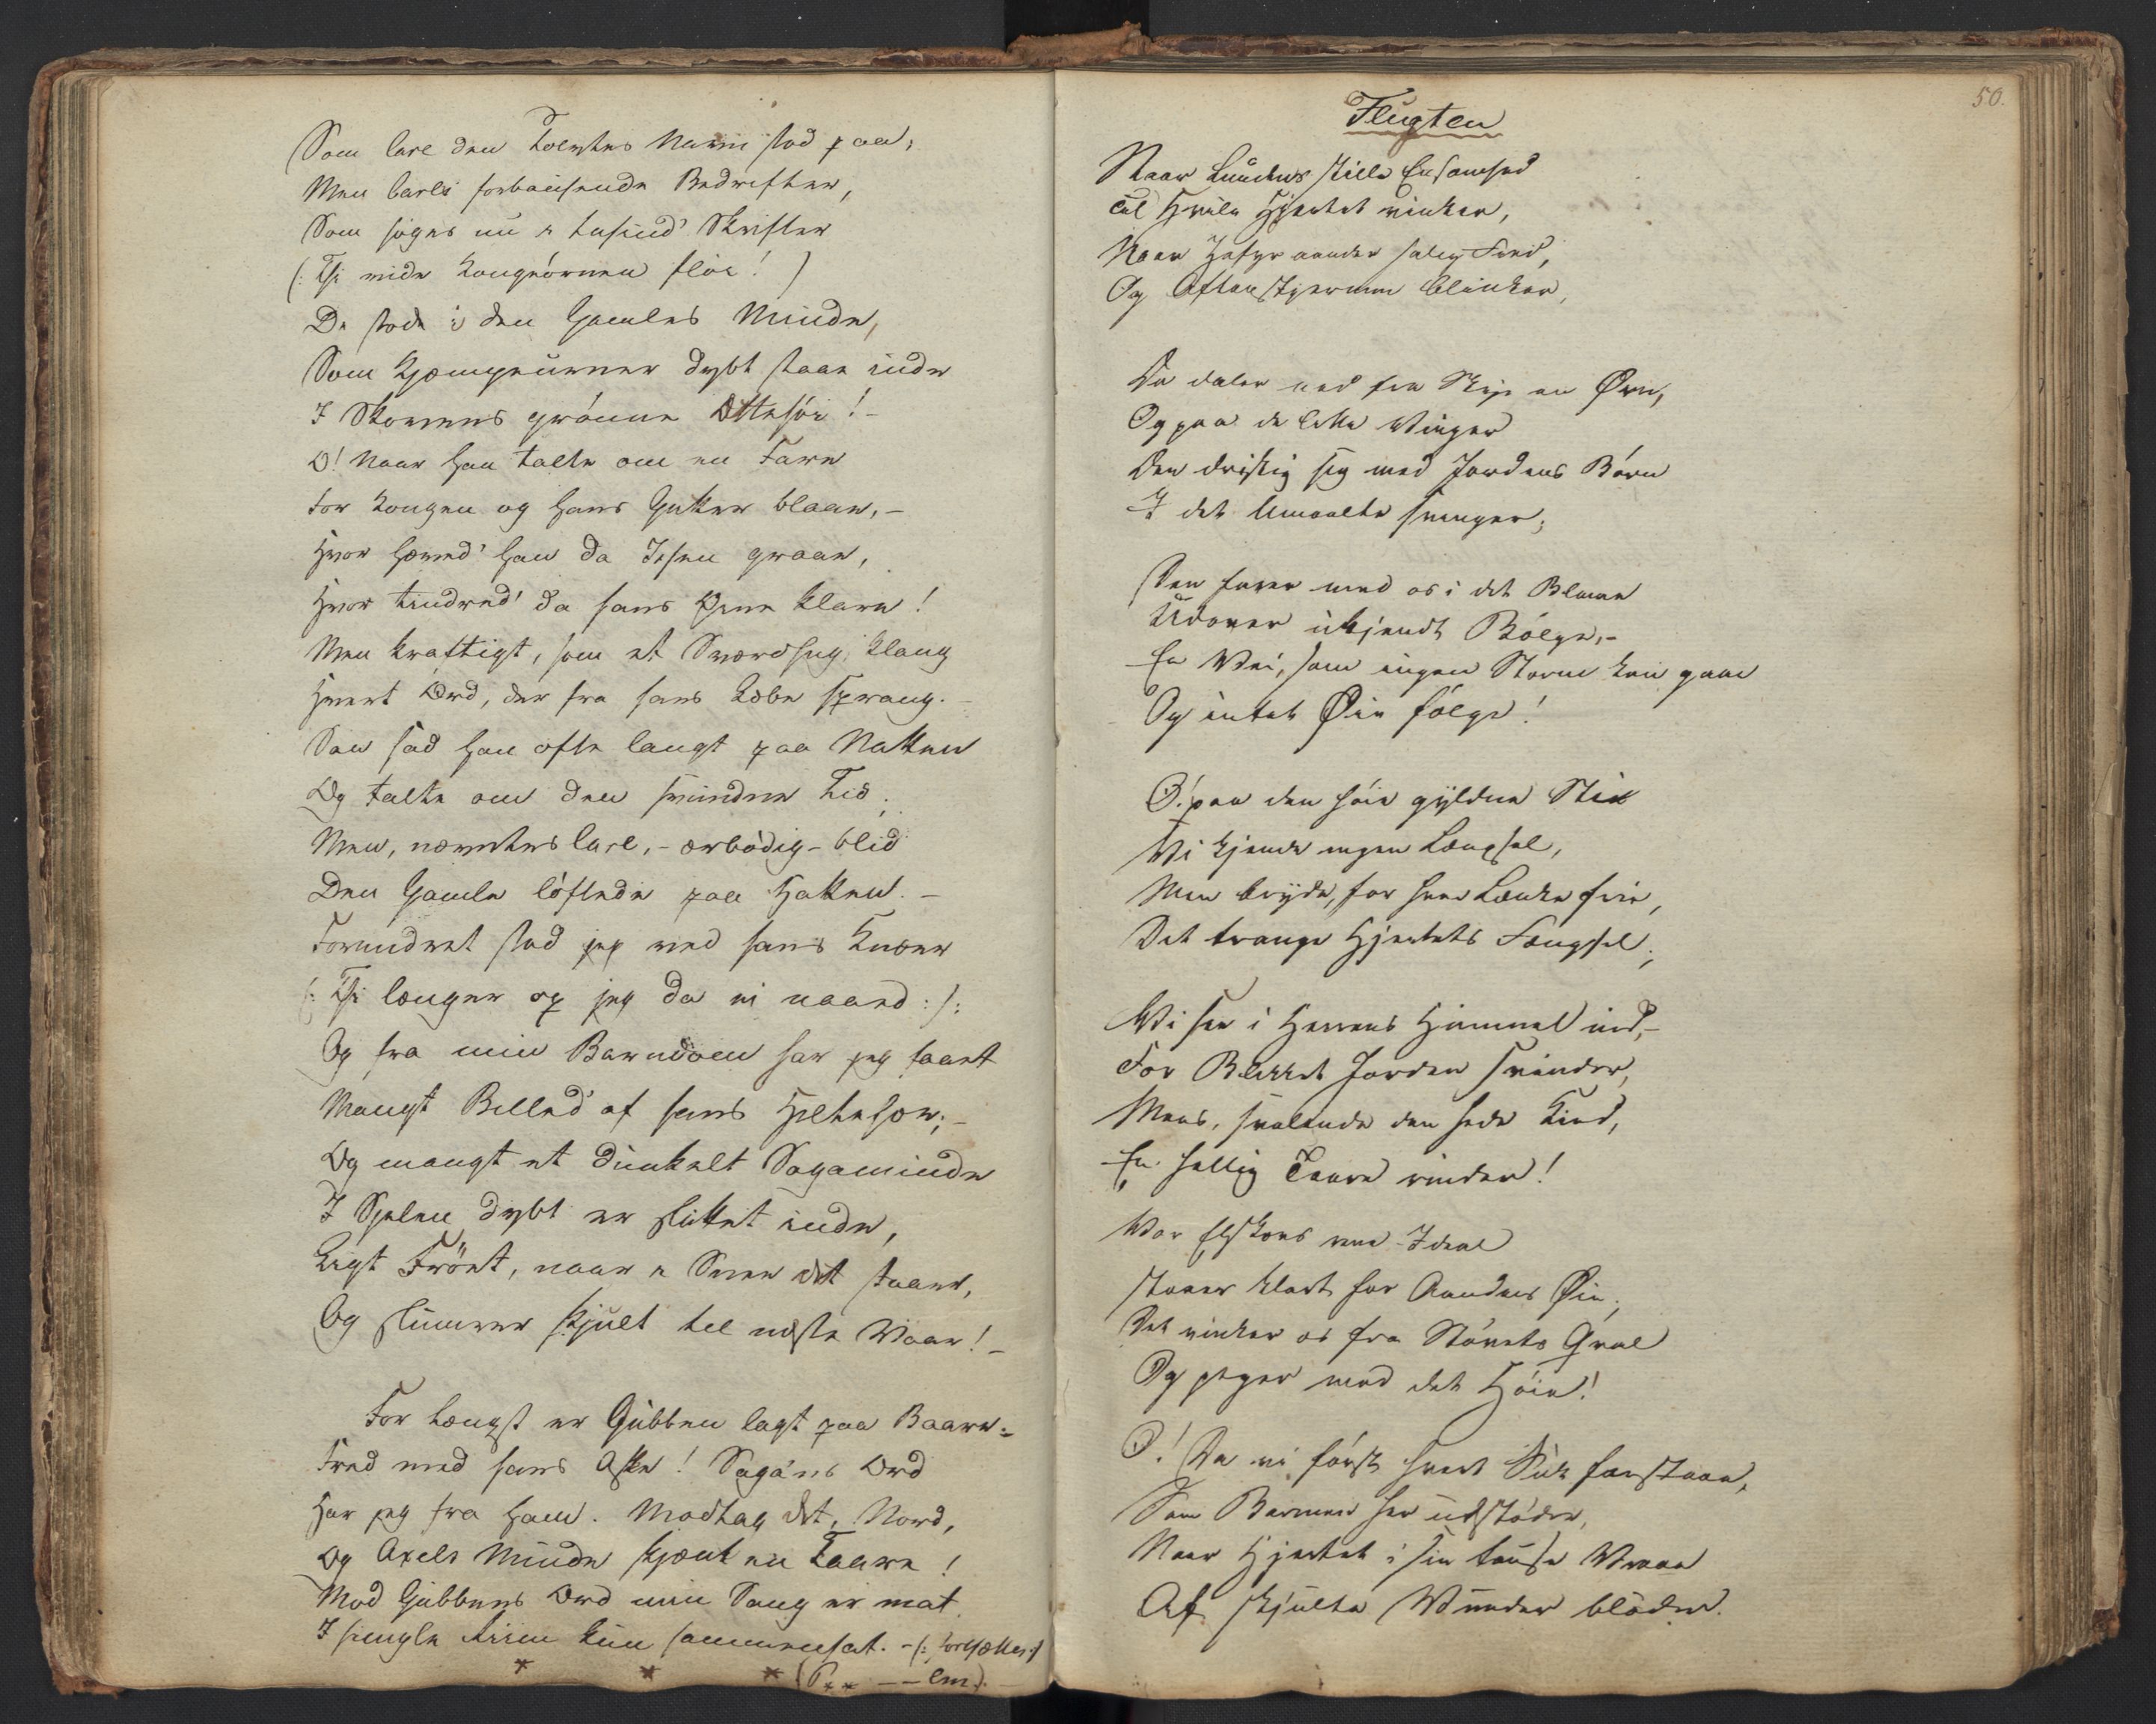 Som Carl den Tolvtes Navn stod paa;
Men Carls forbausende Bedrifter,
Som søges nu i tusind' Skrifter
(: Thi vide Kongeörnen flöi! )
De stode i den Gamles Minde,
Som Kjæmpeurner dybt staae inde
I Skovens grönne Ættehöi! -
O! naar han talte om en Fare
For Kongen og hans Gutter blaae, -
Hvor hæved' han da Issen graae,
Hvor tindred' da hans Öine klare!
Men kraftigt, som et Sværdhug, klang
Hvert Ord, der fra hans Læbe sprang. -
Saa sad han ofte langt paa Natten
Og talte om den svundne Tid;
Men, nævntes Carl, - ærbödig-blid
Den Gamle löftede paa Hatten. -
Forundret stod jeg ved hans Knæer
(: Thi længer op jeg da ei naaed :):
Og fra min Barndom har jeg saaet
Mangt Billed' af hans Heltehær; -
Og mangt et dunkelt Sagaminde
I Sjelen dybt er sluttet inde,
Ligt Fröet, naar i Sneen det staaer,
Og slumrer skjult til næste Vaar! -
For længst er Gubben lagt paa Baare:
Fred med hans Aske! Saga'ns Ord
Har jeg fra ham. Modtag det, Nord,
Og Axels Minde skjænk en Taare!
Mod Gubbens Ord min Sang er mat
I simple Riim kun sammensat. - (: Fortsættes :)
* * * (P** -- lm). -
50.
Flugten
Naar Lundens stille Eensomhed
Til Hvile Hjertet vinker,
Naar Zefyr aander salig Fred,
Og Aftenstjernen blinker,
Da daler ned fra Sky en Ørn,
Og paa de lette Vinger
Den dristig sig med Jordens Börn
I det Umaalte svinger;
Den farer med os i det Blaae
Udover ukjendt Bölge, -
En Vei, som ingen Storm kan gaae
Og intet Øie fölge!
O! paa den höie gyldne Stie
Vi kjende ingen Længsel,
Men bryde, for hver Lænke frie,
Det trange Hjertets Fængsel;
Vi see i Herrens Himmel ind, -
For Blikket Jorden svinder,
Mens, svalende den hede Kind,
En hellig Taare rinder!
Vor Elskovs rene Ideal
Staaer klart for Aandens Øie,
Det vinker os fra Stövets Qval
Og peger mod det Höie!
O! Da vi först hvert Suk forstaae,
Som Barmen her udstöder,
Naar Hjertet i sin tause Vraae
Af skjulte Wunder blöder.